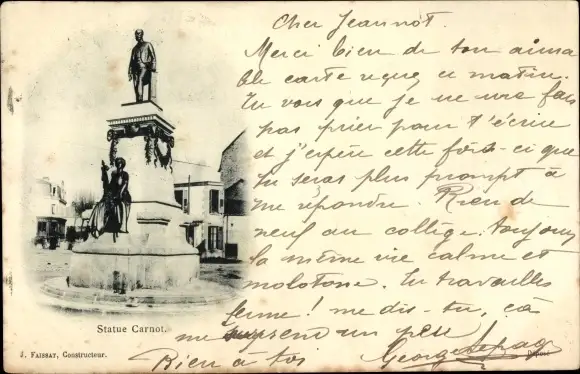 Cher Jeannot.
Merci bien de ton aima
ble carte reçue, ce matin.
Tu vois que je ne me fais
pas prier pour t'écrire
et j'espère cette fois-ci que
tu seras plus prompt à
me répondre. Rien de
neuf au collège. toujours
la même vie calme et
molotone. Tu travailles
ferme! me dis-tu, cà
me surprend un peu
Bien à toi Georges
Statue Carnot.
J. FAISSAT, Constructeur.
Déposé